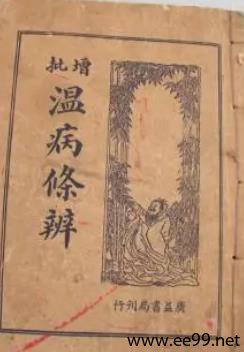 增批
温病條辨
廣益書局刊行
www.ee99.net